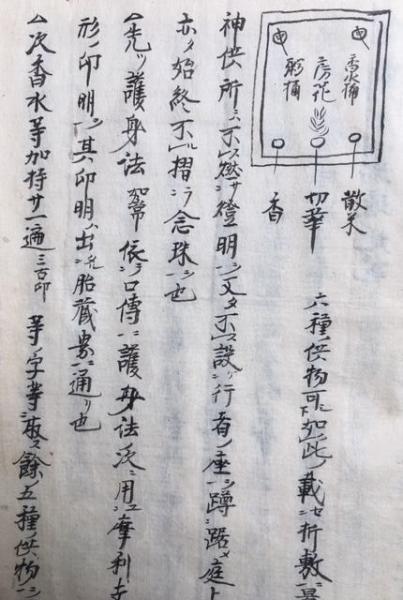 香水桶
房花
粥桶
散米
切華
香
六種ノ供物可如此ノ載セ折敷ニ
神供所ニハ不燃サ燈明ヲ又タ不設ケ行者ノ座ヲ蹲踞メ庭上
亦タ始終不摺ラ念珠ヲ也
△先ツ護身法 如常 依ラハ口傳ニ護身法ノ次ニ用ユ摩利支
形ノ印明ヲ其ノ印明ハ出タリ胎蔵界ニ通リ也
△次香水等加持サ一遍 三古印 等ノ字等 餘ノ五種ノ供物ニ